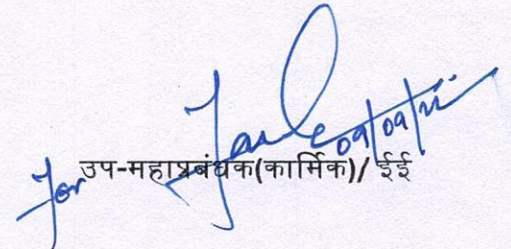 09/09/22
For उप-महाप्रबंधक(कार्मिक)/ ईई